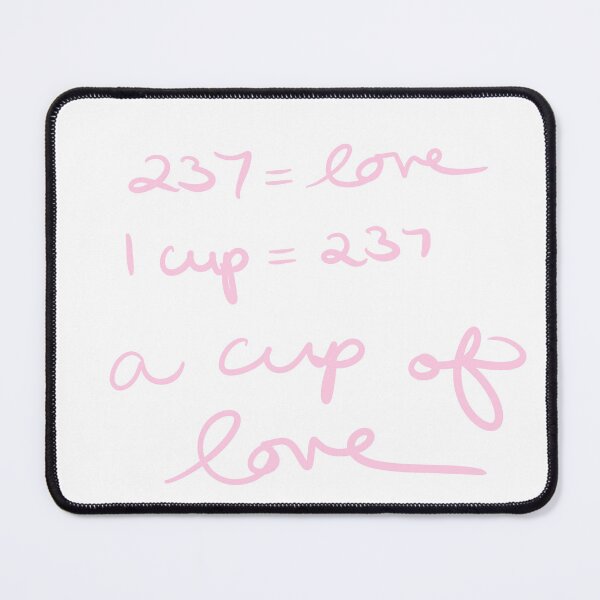 237 = love
1 cup = 237
a cup of
love